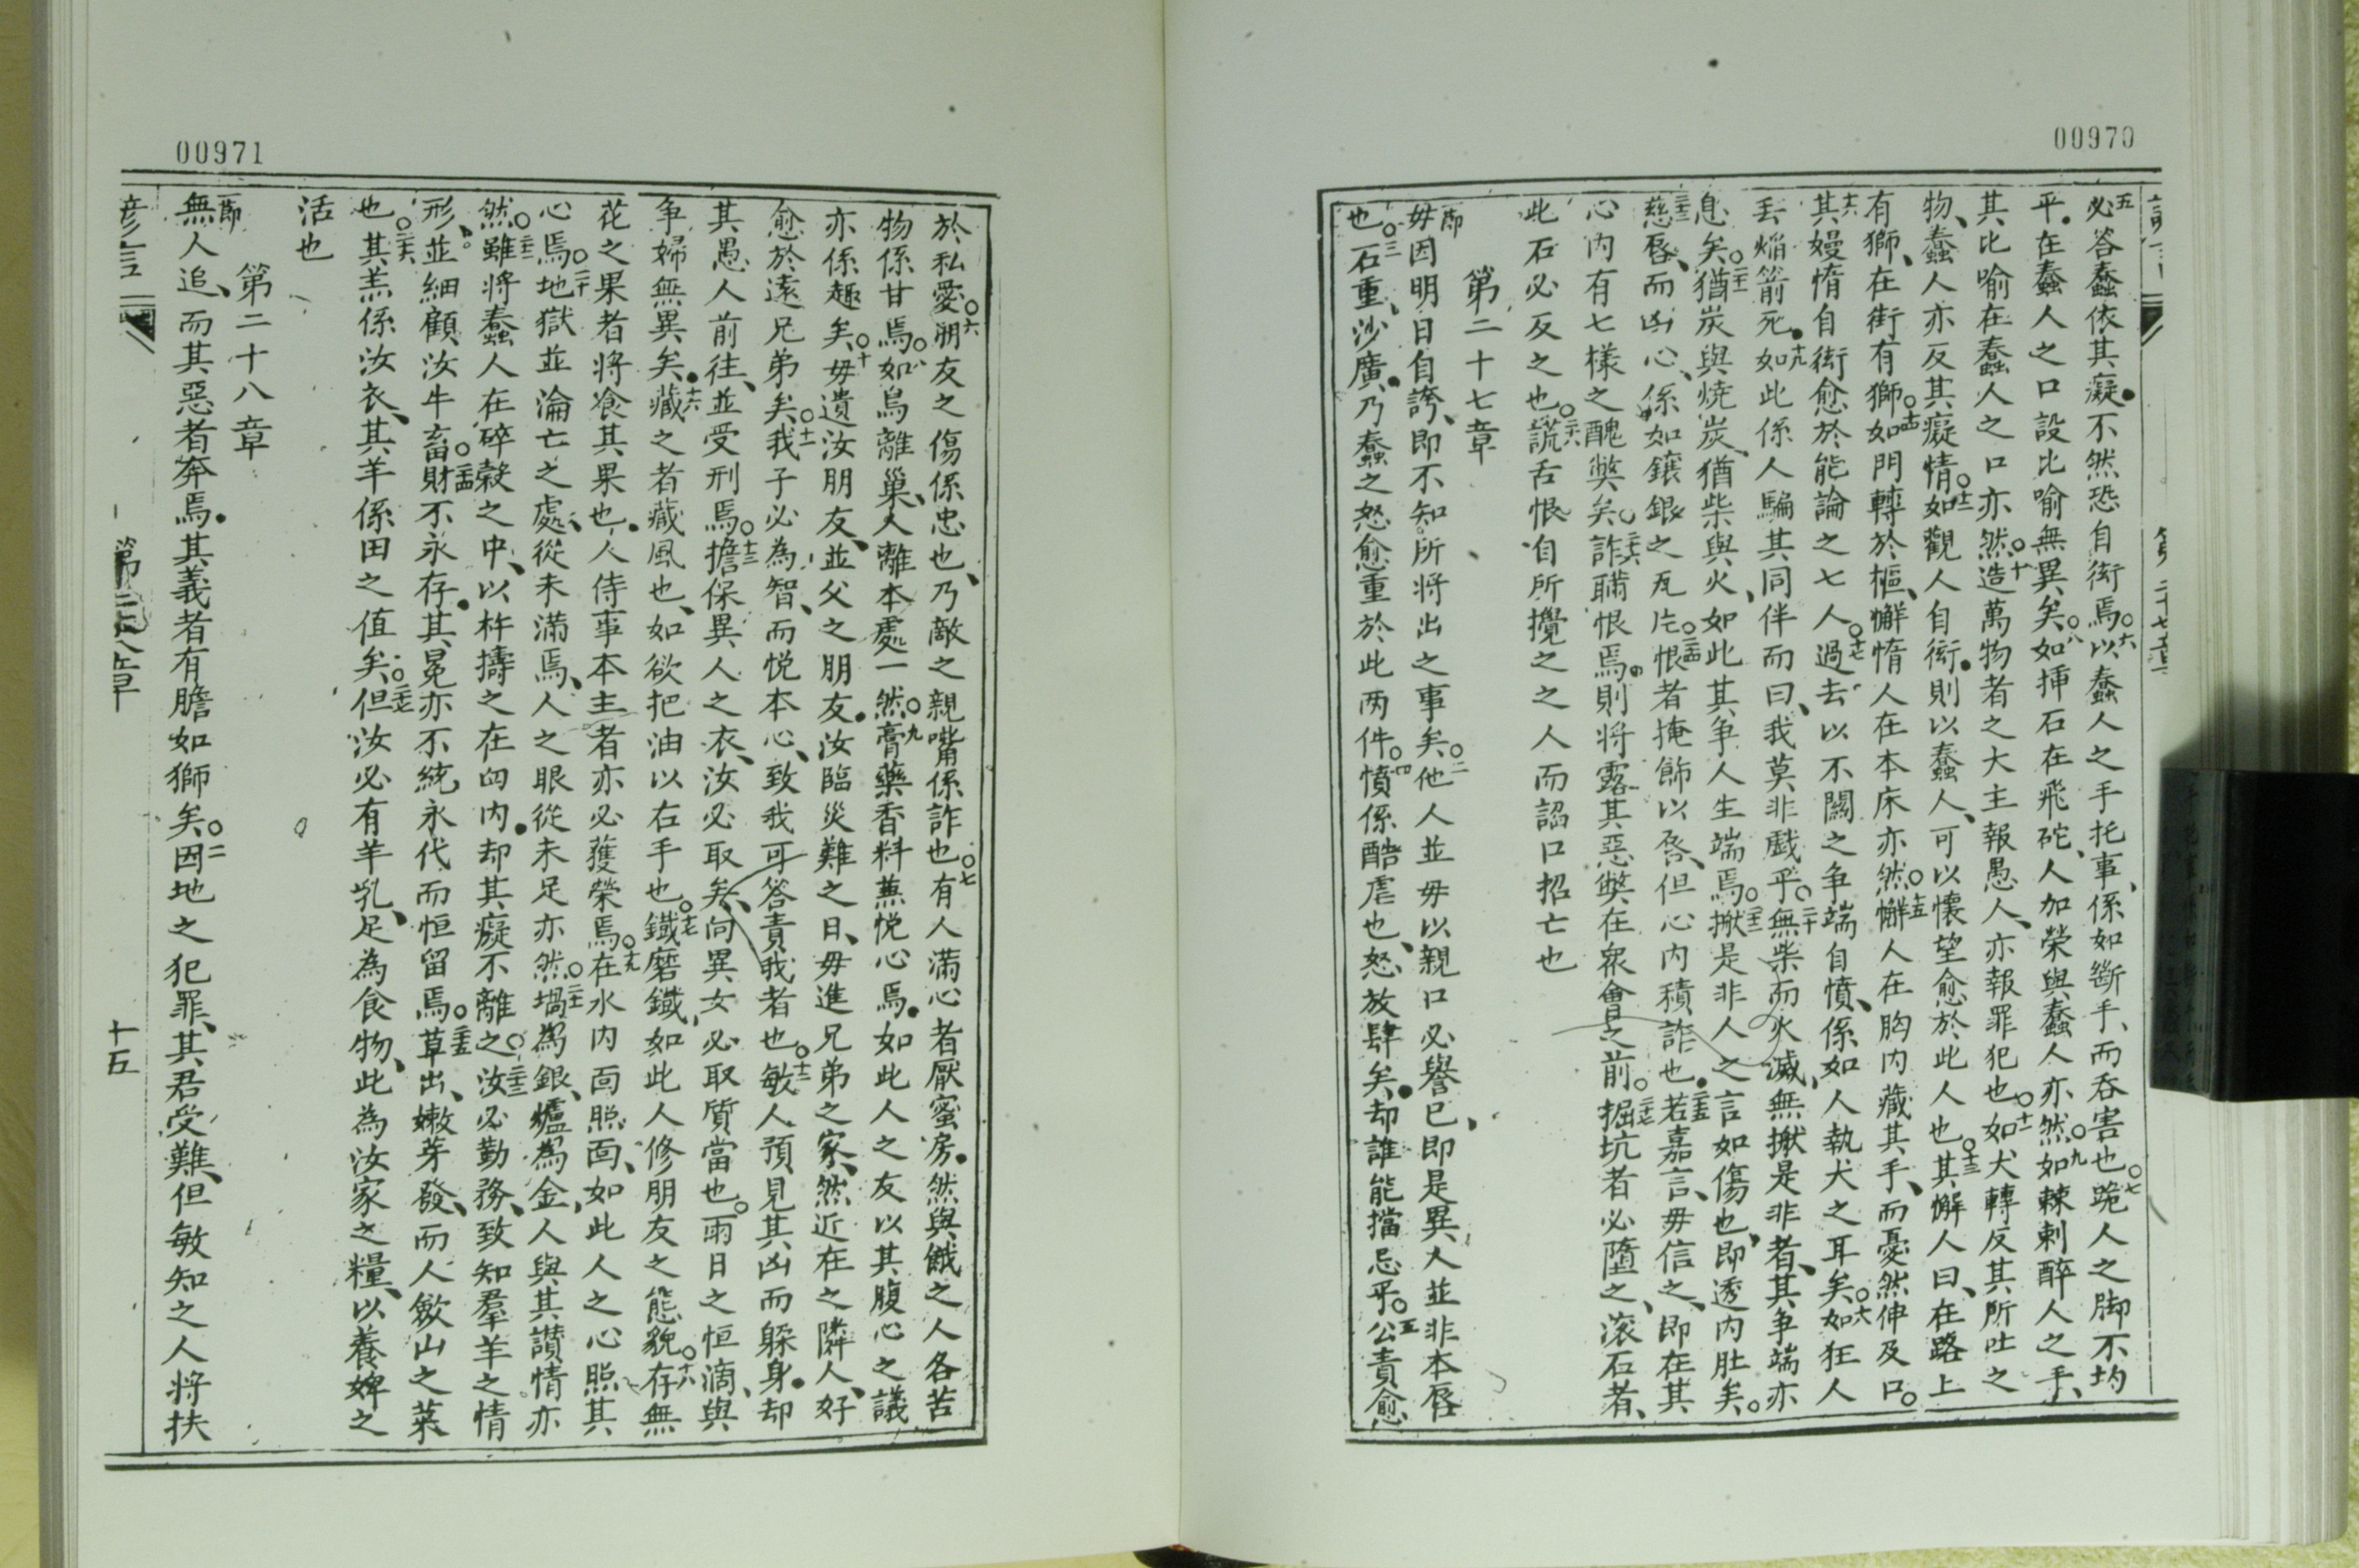 00970
五必答蠢依其癡不然恐自衒焉○六以蠢人之手托事、係如斷手、而吞害也○七跪人之脚不均
平在蠢人之口設比喻無異矣○八如揷石在飛砣、人加榮與蠢人亦然○九如棘刺醉人之手、
其比喻在蠢人之口亦然○十造萬物者之大主報愚人、亦報罪犯也○十一如犬轉反其所吐之
物、蠢人亦反其癡情○十二如觀人自衒則以蠢人、可以懷望愈於此人也○十三其懈人曰、在路上
有獅、在街有獅○十四如門轉於樞、懈惰人在本床亦然○十五懈人在胸內藏其手、而憂然伸及口○
十六其嫚惰自衒愈於能論之七人○十七過去以不關之争端自憤、係如人執犬之耳矣○十八如狂人
丟焰箭死十九如此係人騙其同伴而曰、我莫非戲乎○二十無柴而火滅、無揪是非者、其争端亦
息矣○二十一猶炭與燒炭、猶柴與火、如此其争人生端焉○二十二揪是非人之言如傷也、即透內肚矣○
二十三慈唇、而凶心、係如鑲銀之瓦片○二十四恨者掩飾以唇、但心內積詐也二十五若嘉言、毋信之、即在其
心內有七樣之醜獘矣○二十六詐瞞恨焉、則將露其惡獘在衆會之前○二十七掘坑者必墮之、滚石者、
此石必反之也○二十八謊舌恨自所攪之之人而諂口招亡也
第二十七章
節毋因明日自誇、即不知所將出之事矣○二他人並毋以親口必譽已、即是異人並非本唇
也○三石重、沙廣、乃蠢之怒愈重於此两件○四憤係酷虐也、怒、放肆矣却誰能擋忌乎○五公責愈
第二十七章
00971
於私愛○六朋友之傷係忠也、乃敵之親嘴係詐也○七有人滿心者厭蜜房然與餓之人各苦
物係甘焉○八如鳥離巢、人離本處一然○九膏藥香料蕪悅心焉如此人之友以其腹心之議
亦係趣矣○十毋遺汝朋友、並父之朋友汝臨災難之日、毋進兄弟之家、然近在之隣人、好
愈於遠兄弟矣○十一我子必為智、而悅本心、致我可答責我者也○十二敏人預見其凶而躱身却
其愚人前往、並受刑焉○十三擔保異人之衣、汝必取矣、向異女必取質當也○雨日之恒滴、與
争婦無異矣十六藏之者藏風也、如欲把油以右手也○十七鐵磨鐵、如此人修朋友之態貌○十八存無
花之果者將飡其果也人侍事本主者亦必獲榮焉○十九在水內面照面、如此人之心照其
心焉○二十地獄並淪亡之處、從未滿焉、人之眼從未足亦然○二十一堝為銀、爐為金、人與其讚情亦
然○二十二雖將蠢人在碎穀之中、以杵擣之在臼內却其癡不離之○二十三汝必勤務、致知羣羊之情
形、並細顧汝牛畜○二十四財不永存其冕亦不統永代而恒留焉○二十五草出、嫩芽發、而人歛山之菜
也○二十六其羔係汝衣、其羊係田之值矣○二十七但汝必有羊乳、足為食物、此為汝家之糧、以養婢之
活也
第二十八章
節無人追、而其惡者奔焉其義者有膽如獅矣○二因地之犯罪、其君受難、但敏知之人將扶
諺言
十五